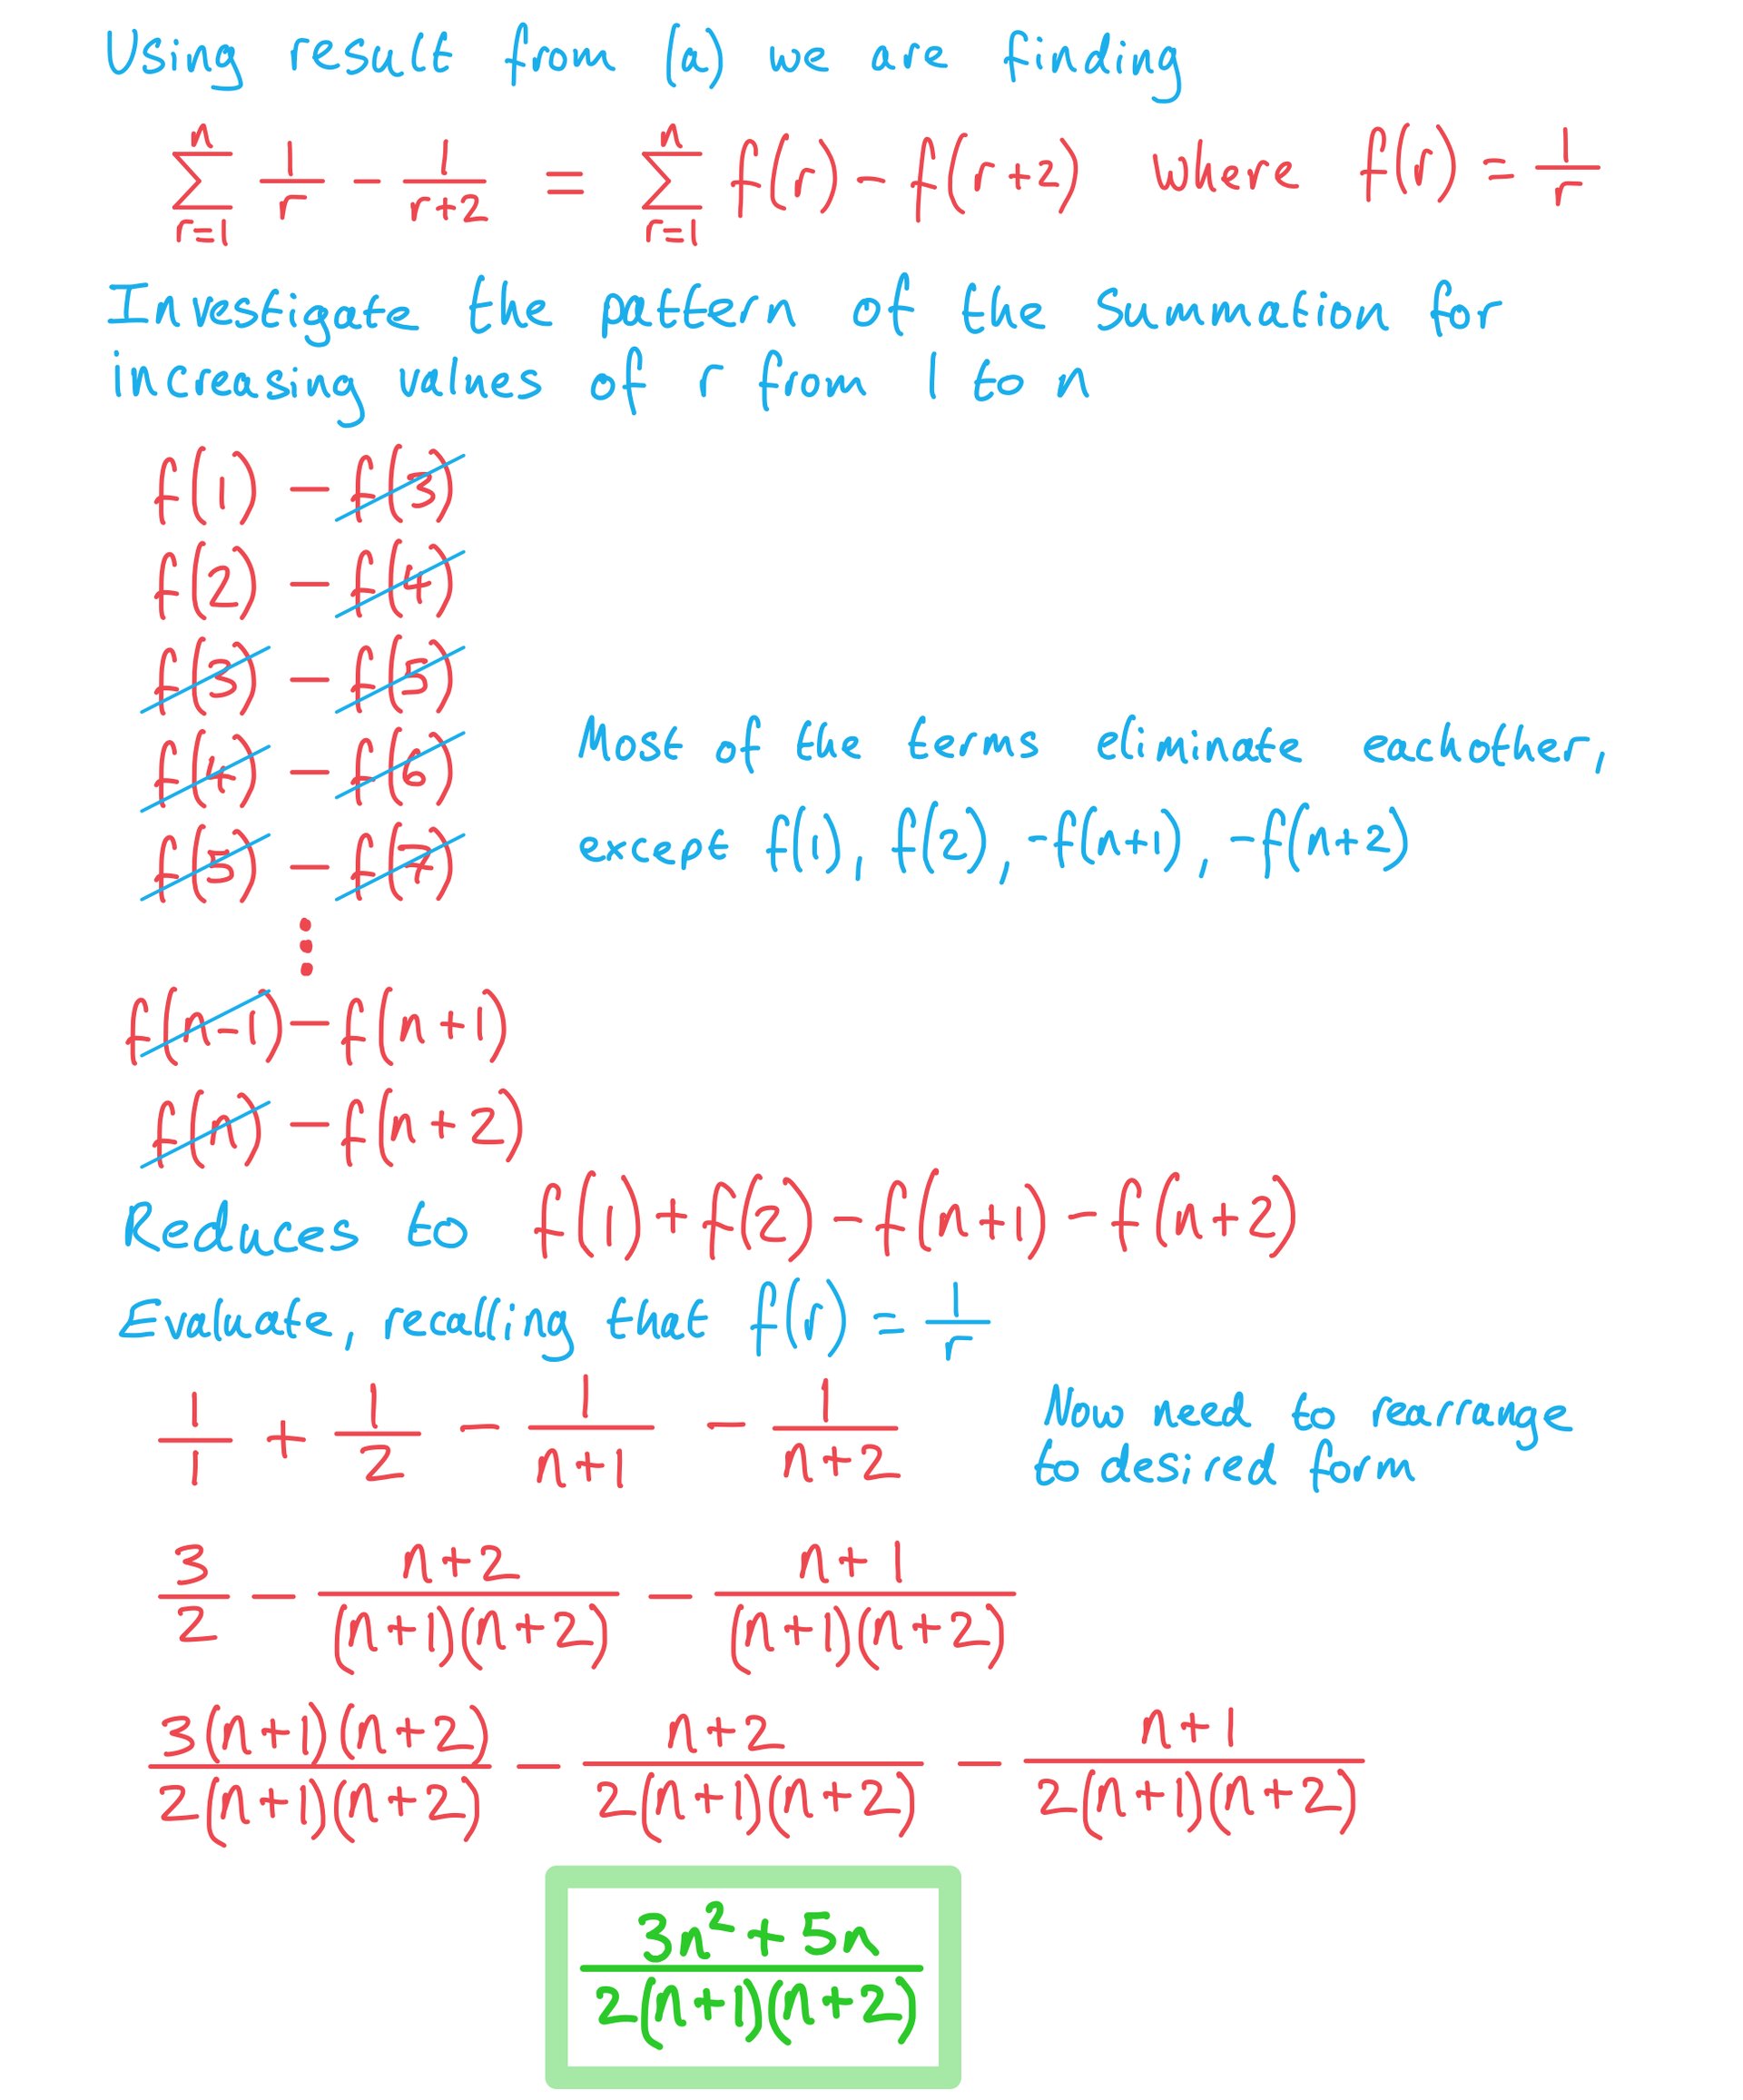 Using result from (a) we are finding
∑_{r=1}^{n} 1/r − 1/(r+2) = ∑_{r=1}^{n} f(r) − f(r+2) where f(r) = 1/r
Investigate the pattern of the summation for
increasing values of r from 1 to n
f(1) − f(3)
f(2) − f(4)
f(3) − f(5)
f(4) − f(6)
f(5) − f(7)
Most of the terms eliminate eachother,
except f(1), f(2), −f(n+1), −f(n+2)
⋮
f(n−1) − f(n+1)
f(n) − f(n+2)
Reduces to f(1) + f(2) − f(n+1) − f(n+2)
Evaluate, recalling that f(r) = 1/r
1/1 + 1/2 − 1/(n+1) − 1/(n+2)
Now need to rearrange
to desired form
3/2 − (n+2)/((n+1)(n+2)) − (n+1)/((n+1)(n+2))
3(n+1)(n+2)/(2(n+1)(n+2)) − (n+2)/(2(n+1)(n+2)) − (n+1)/(2(n+1)(n+2))
(3n² + 5n)/(2(n+1)(n+2))